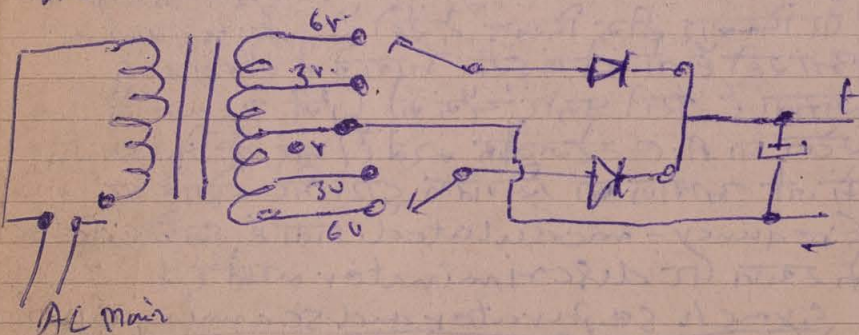 6v
3v.
0v
3v
6v
+
-
AC Main